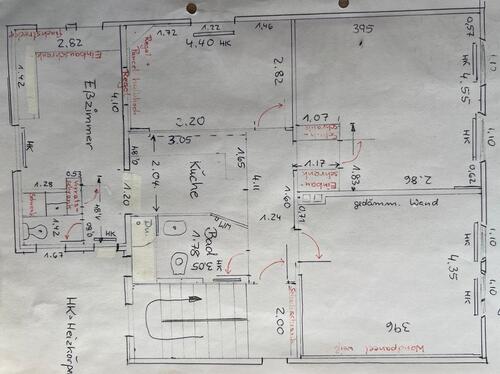 1.72
1.22
1.46
395
0,57
HK
4.40
HK
4.55
28.2
Einbauschrank
Regal
1.42
Eßzimmer
4.10
Regal
2.82
2.20
1.07
Schrank
HK
3.05
0,81
Küche
1.65
4.11
2.04
1.17
Einbau
schrank
1.83
2.86
0,62
HK
0.5
1.28
1.20
1.60
0,71
gedämm. Wand
1.24
Du.
WM
1.42
0,80
HK
Bad
1.78
3.05
HK
1.67
HK
4.35
1,10
1,10
1,10
1,10
2.00
396
Wandpaneel weiß
HK = Heizkörper